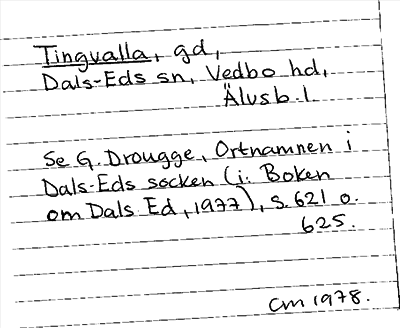 Tingvalla, gd,
Dals-Eds sn, Vedbo hd,
Älvsb. l.
Se G. Drougge, Ortnamnen i
Dals-Eds socken (i: Boken
om Dals Ed, 1977), s. 621 o.
625.
CM 1978.